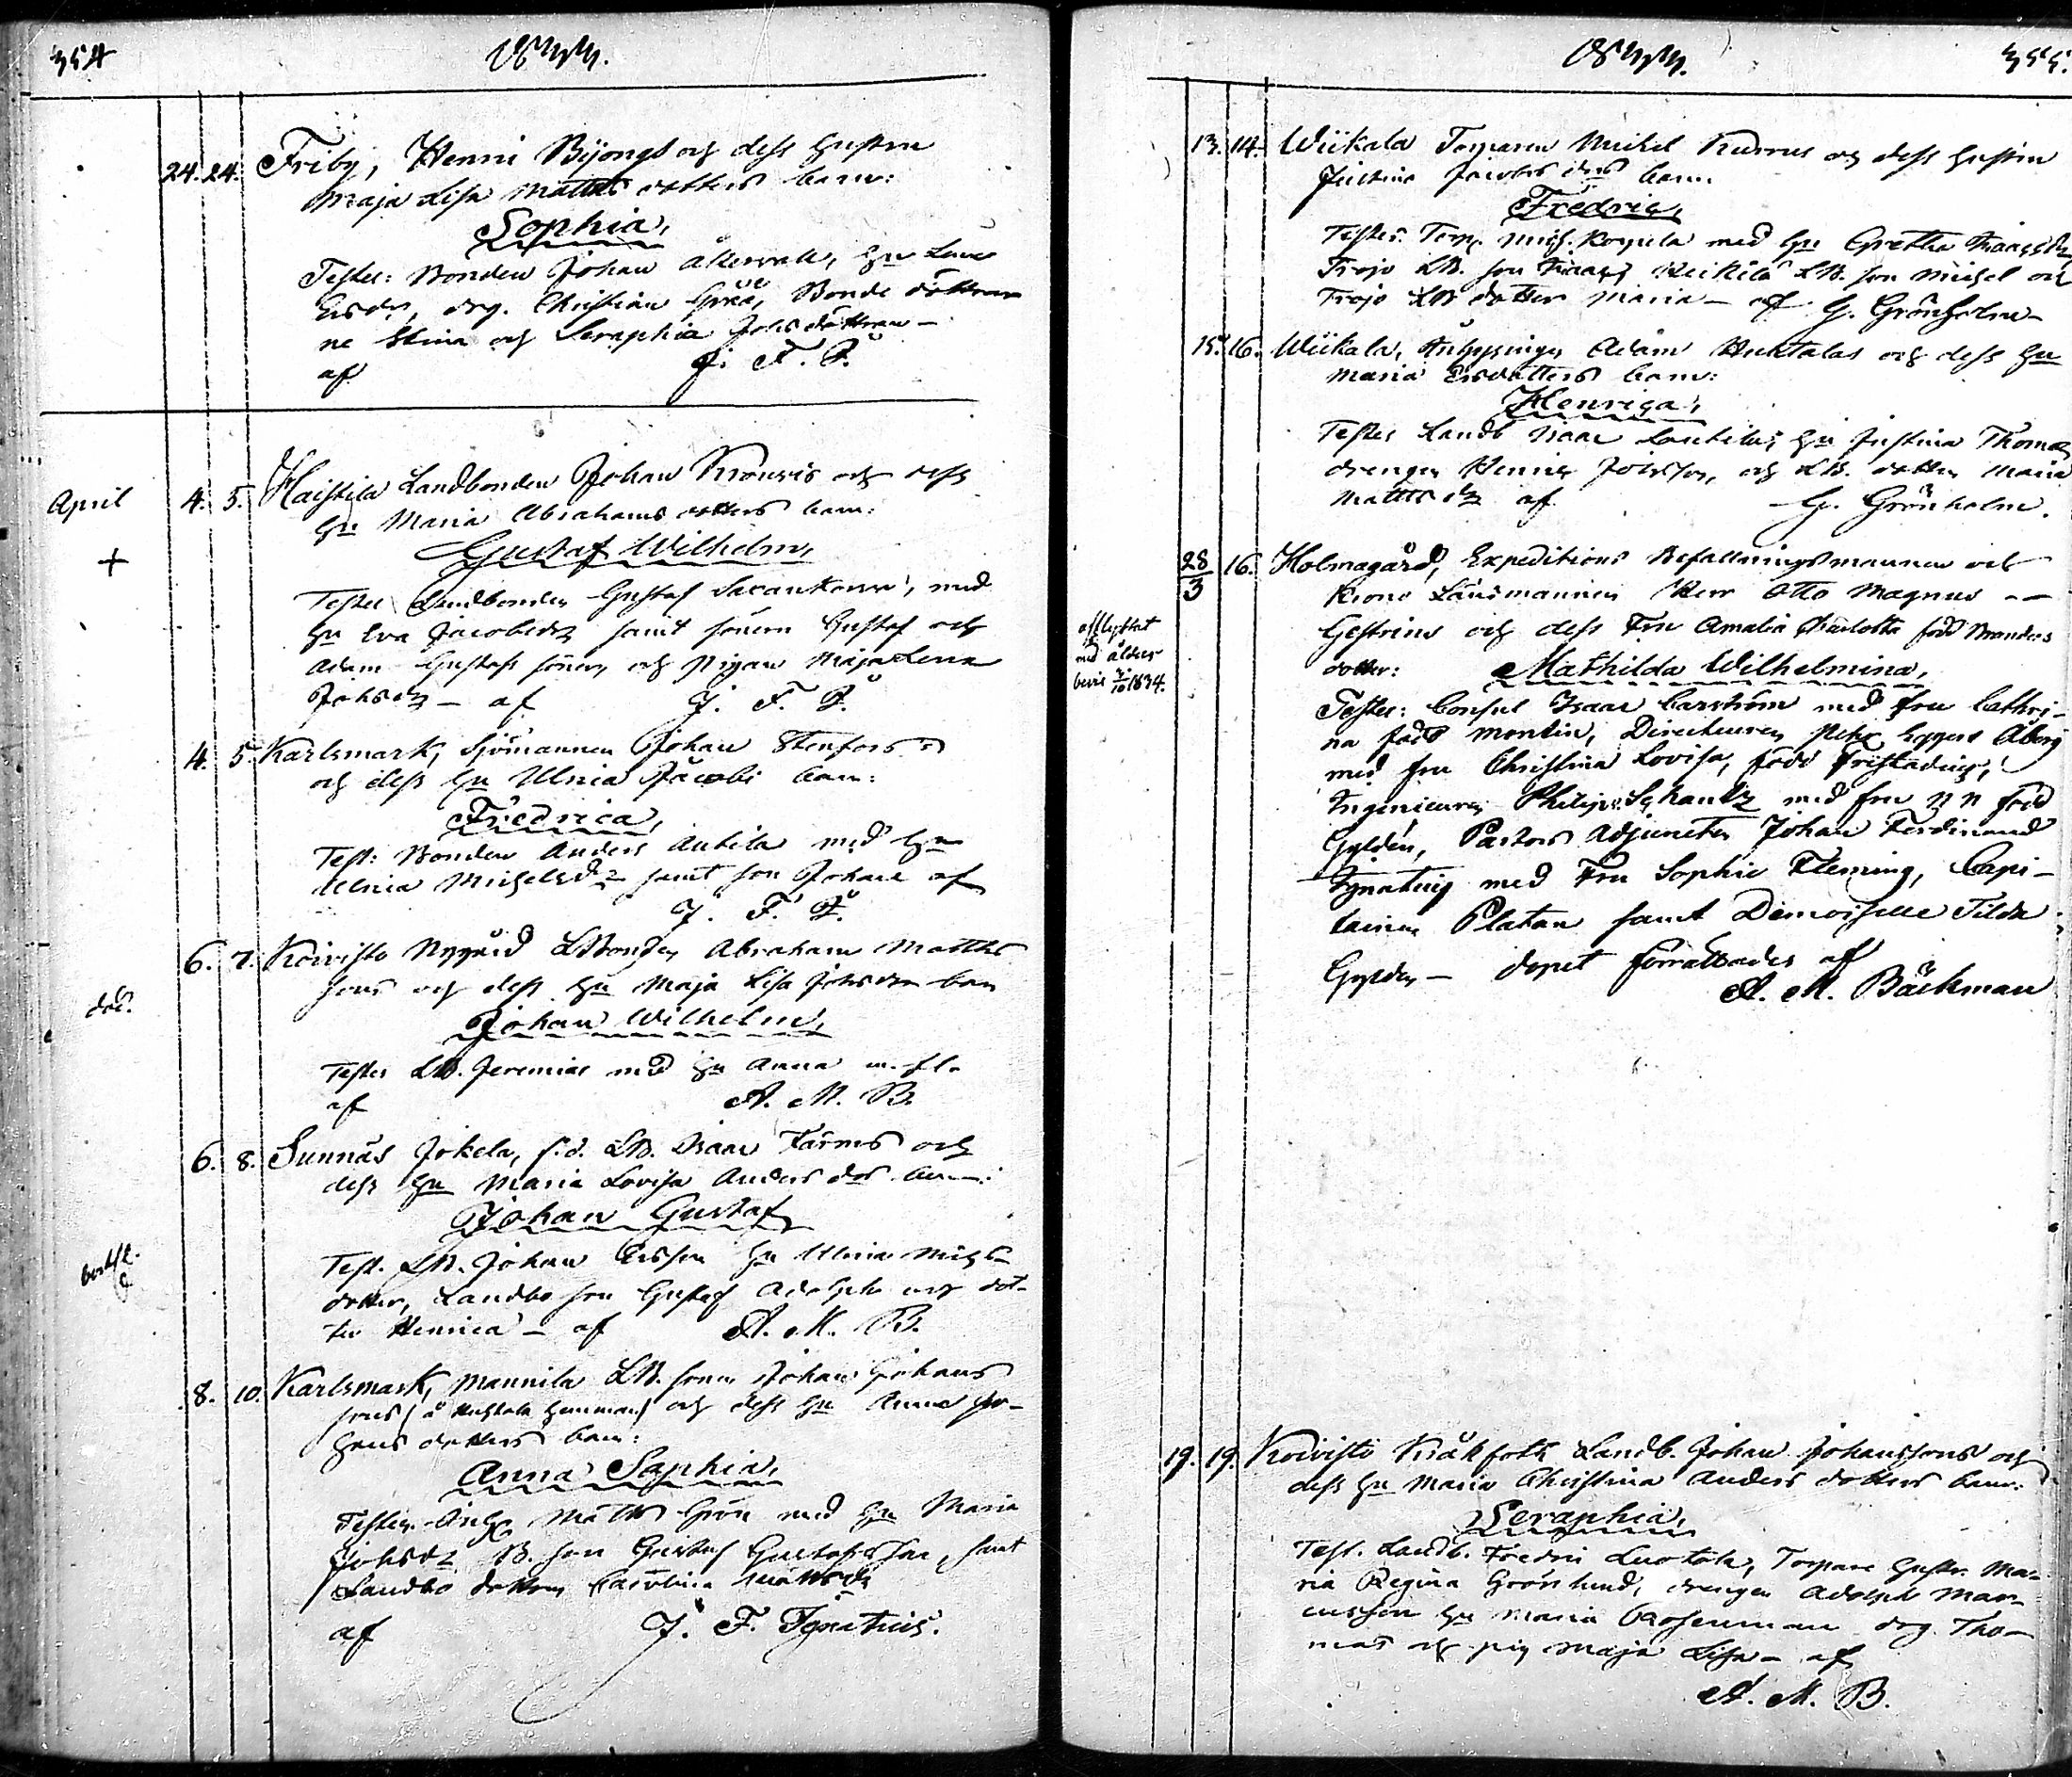 354
1833.
24. 24. Friby, Henric Byongs och dess hustru
Maja Lisa Matts dotters barn:
Sophia,
Testes: Bonden Johan Åkervall, hu Lena
Ersdr, drg. Christian Grää, Bonde döttrar
ne Stina och Seraphia Johsdöttrar –
af J. F. I.
April 4. 5. Haistila Landbonden Johan Krouvis och dess
hu Maria Abrahams dotters barn:
+
Gustaf Wilhelm,
Testes Landbonden Gustaf, med
hu Eva Jacobsdr samt sönern Gustaf och
Adam Gustafs söner, och Pigan Maja Lena
Johsdr – af J. F. I.
4. 5. Karlsmark, Sjömannen Johan Stenfors
och dess hu Ulrica Jacobs barn:
Fredrica,
Test: Bonden Anders Antila med hu
Ulrica Michelsdr samt son Johan af
J. F. I.
6. 7. Koivisto Nygård LBonden Abraham Matts
sons och dess hu Maja Lisa Johsdrs barn
död.
Johan Wilhelm,
Testes LB. Jeremias med hu Anna m. fl.
af A. M. B.
6. 8. Sunnäs Jokela, f.d. LB. Isaac Färms och
dess hu Maria Lovisa Anders drs barn:
Johan Gustaf
Test. LB. Johan Ersson hu Ulrica Michs
dotter, Landbo son Gustaf Adolph och dot-
ter Henrica – af A. M. B.
8. 10. Karlsmark, Mannila LB. sonen Johan Johans
sons (å hemman) och dess hu Anna Jo-
hans dotters barn:
Anna Sophia,
Testes. Matts Grön med hu Maria
Johsdr B. son Gustaf Gustafsson, samt
Landbo dottern Carolina Mattsdr
af J. F. Ignatius.
1833.
355.
13. 14. Wiikala Torparen Michel Kurrus och dess hustru
Justina Jacobs drs barn
Fredric,
Testes. Torp. Mich. Koppela med hu Gretha
Trojo LB. son Heikilä LB. son Michel och
Trojo LB dotter Maria – af G. Grönholm –
15. 16. Wiikala, Inhysingen Adam Huktalas och dess hu
Maria Ersdotters barn:
Henrica,
Testes Landb Isaac Lautila, hu Justina Thomasdr
drengen Henric Johsson, och LB. dotter Maria
Matts dr af G. Grönholm.
28/3 16. Holmagård, Expeditions Befallningsmannen och
Krono Länsmannen Herr Otto Magnus –
Gestrins och dess Fru Amalia Charlotta född Branders
afflyttat
med ålders
bevis 7/10 1834.
dotter: Mathilda Wilhelmina,
Testes: Consul Isaac Carström med fru Cathri-
na född Montin, Directeuren Åberg
med fru Christina Lovisa, född
Ingenieuren Philip Schantz med fru N N född
Gyldén, Pastors Adjuncten Johan Ferdinand
Ignatius med Fru Sophie Fleming, Capi-
tainen Platan samt Demoiselle Tilda
Gyldén – dopet förrättades af
A. M. Bäckman
19. 19. Koivisto Kråkfoth Landb. Johan Johanssons och
dess hu Maria Christina Anders dotters barn:
Seraphia,
Test. Landb. Fredric Luotola, Torpare hustr. Ma-
ria Regina Grönlund, drengen Adolph Mar-
cusson hu Maria Rosenman drg. Tho-
mas och pig Maja Lisa – af
A. M. B.